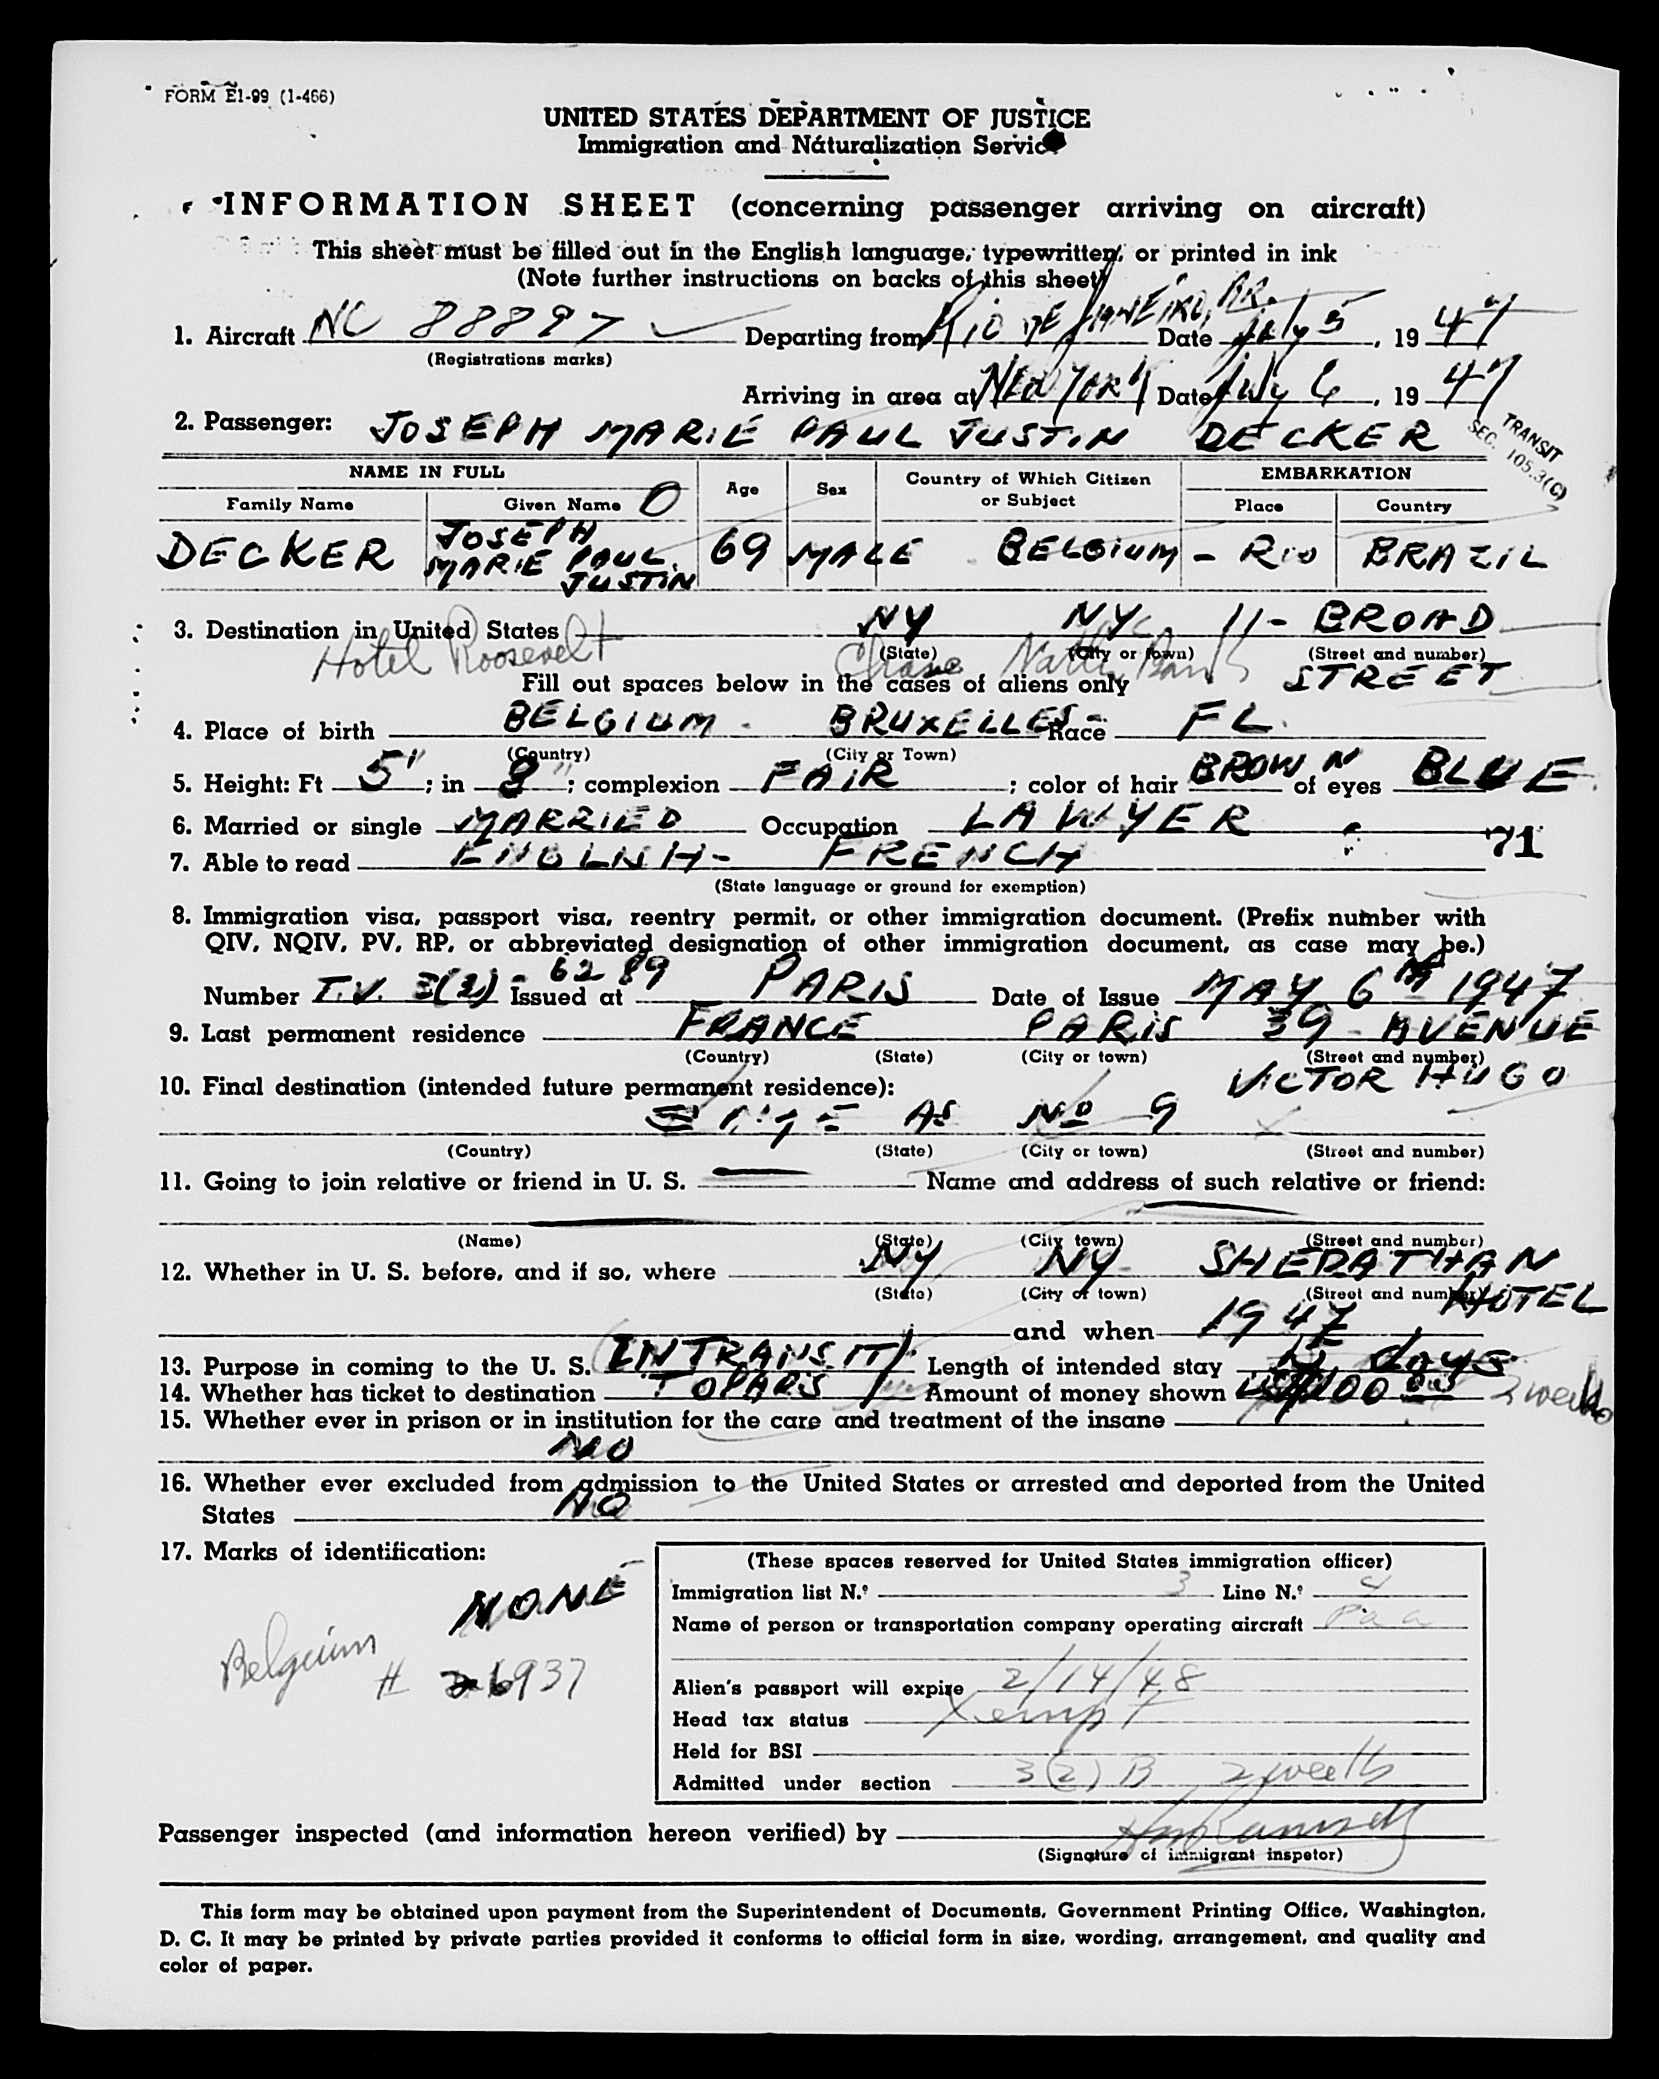 FORM E1-99 (1-466)
UNITED STATES DEPARTMENT OF JUSTICE
Immigration and Naturalization Service
INFORMATION SHEET (concerning passenger arriving on aircraft)
This sheet must be filled out in the English language, typewritten, or printed in ink
(Note further instructions on backs of this sheet)
1. Aircraft NC 88897 Departing from RIO DE JANEIRO, BR. Date July 5, 1947
(Registrations marks)
Arriving in area at New York Date July 6, 1947
2. Passenger: JOSEPH MARIE PAUL JUSTIN DECKER
TRANSIT
SEC. 105.3(C)
NAME IN FULL Age Sex Country of Which Citizen or Subject EMBARKATION
Family Name Given Name Place Country
DECKER JOSEPH MARIE PAUL JUSTIN 69 MALE BELGIUM - RIO BRAZIL
3. Destination in United States NY NYC 11- BROAD
(State) (City or town) (Street and number)
Hotel Roosevelt Chase Natl. Bank STREET
Fill out spaces below in the cases of aliens only
4. Place of birth BELGIUM - BRUXELLES - Race FL.
(Country) (City or Town)
5. Height: Ft 5" ; in 8" ; complexion FAIR ; color of hair BROWN of eyes BLUE
6. Married or single MARRIED Occupation LAWYER
71
7. Able to read ENGLISH - FRENCH
(State language or ground for exemption)
8. Immigration visa, passport visa, reentry permit, or other immigration document. (Prefix number with
QIV, NQIV, PV, RP, or abbreviated designation of other immigration document, as case may be.)
Number T.V. 3(2) - 6289 Issued at PARIS Date of Issue MAY 6th 1947
9. Last permanent residence FRANCE PARIS 39 - AVENUE
(Country) (State) (City or town) (Street and number)
VICTOR HUGO
10. Final destination (intended future permanent residence):
SAME AS No 9
(Country) (State) (City or town) (Street and number)
11. Going to join relative or friend in U. S. Name and address of such relative or friend:
(Name) (State) (City town) (Street and number)
12. Whether in U. S. before, and if so, where NY NY - SHERATHAN
(State) (City or town) (Street and number)
HOTEL
and when 1947
13. Purpose in coming to the U. S. (IN TRANSIT) Length of intended stay days
2 weeks
14. Whether has ticket to destination TO PARIS yes Amount of money shown
15. Whether ever in prison or in institution for the care and treatment of the insane
NO
16. Whether ever excluded from admission to the United States or arrested and deported from the United
States NO
17. Marks of identification:
NONE
Belgium # 26937
(These spaces reserved for United States immigration officer)
Immigration list N.º 3 Line N.º 4
Name of person or transportation company operating aircraft Paa
Alien's passport will expire 2/14/48
Head tax status Xempt
Held for BSI
Admitted under section 3(2) B 2 weeks
Passenger inspected (and information hereon verified) by
(Signature of immigrant inspetor)
This form may be obtained upon payment from the Superintendent of Documents, Government Printing Office, Washington,
D. C. It may be printed by private parties provided it conforms to official form in size, wording, arrangement, and quality and
color of paper.